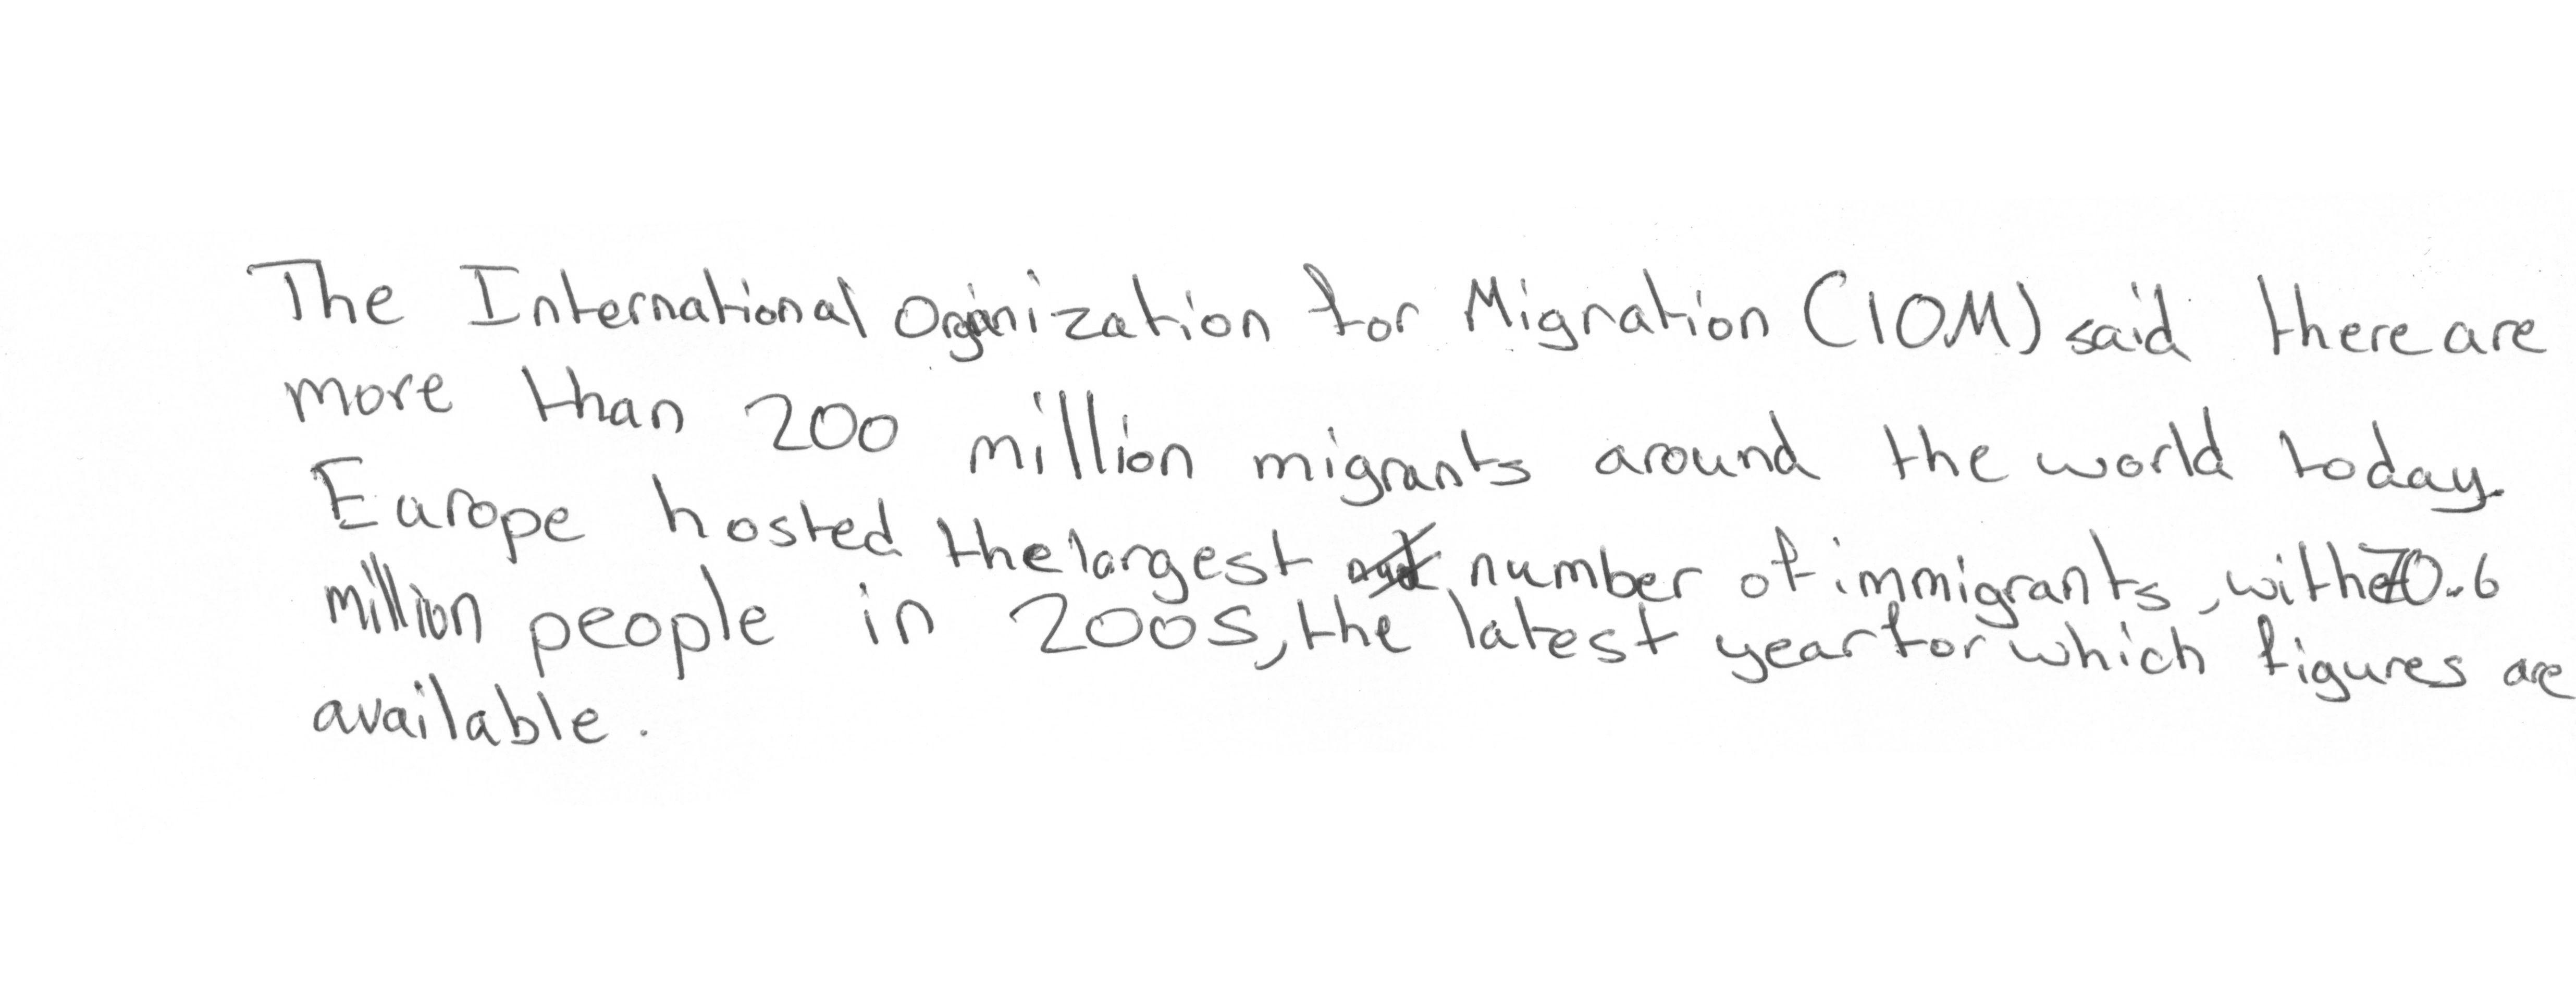 The International Organization for Migration (IOM) said there are
more than 200 million migrants around the world today.
Europe hosted the largest number of immigrants, with 70.6
million people in 2005, the latest year for which figures are
available.